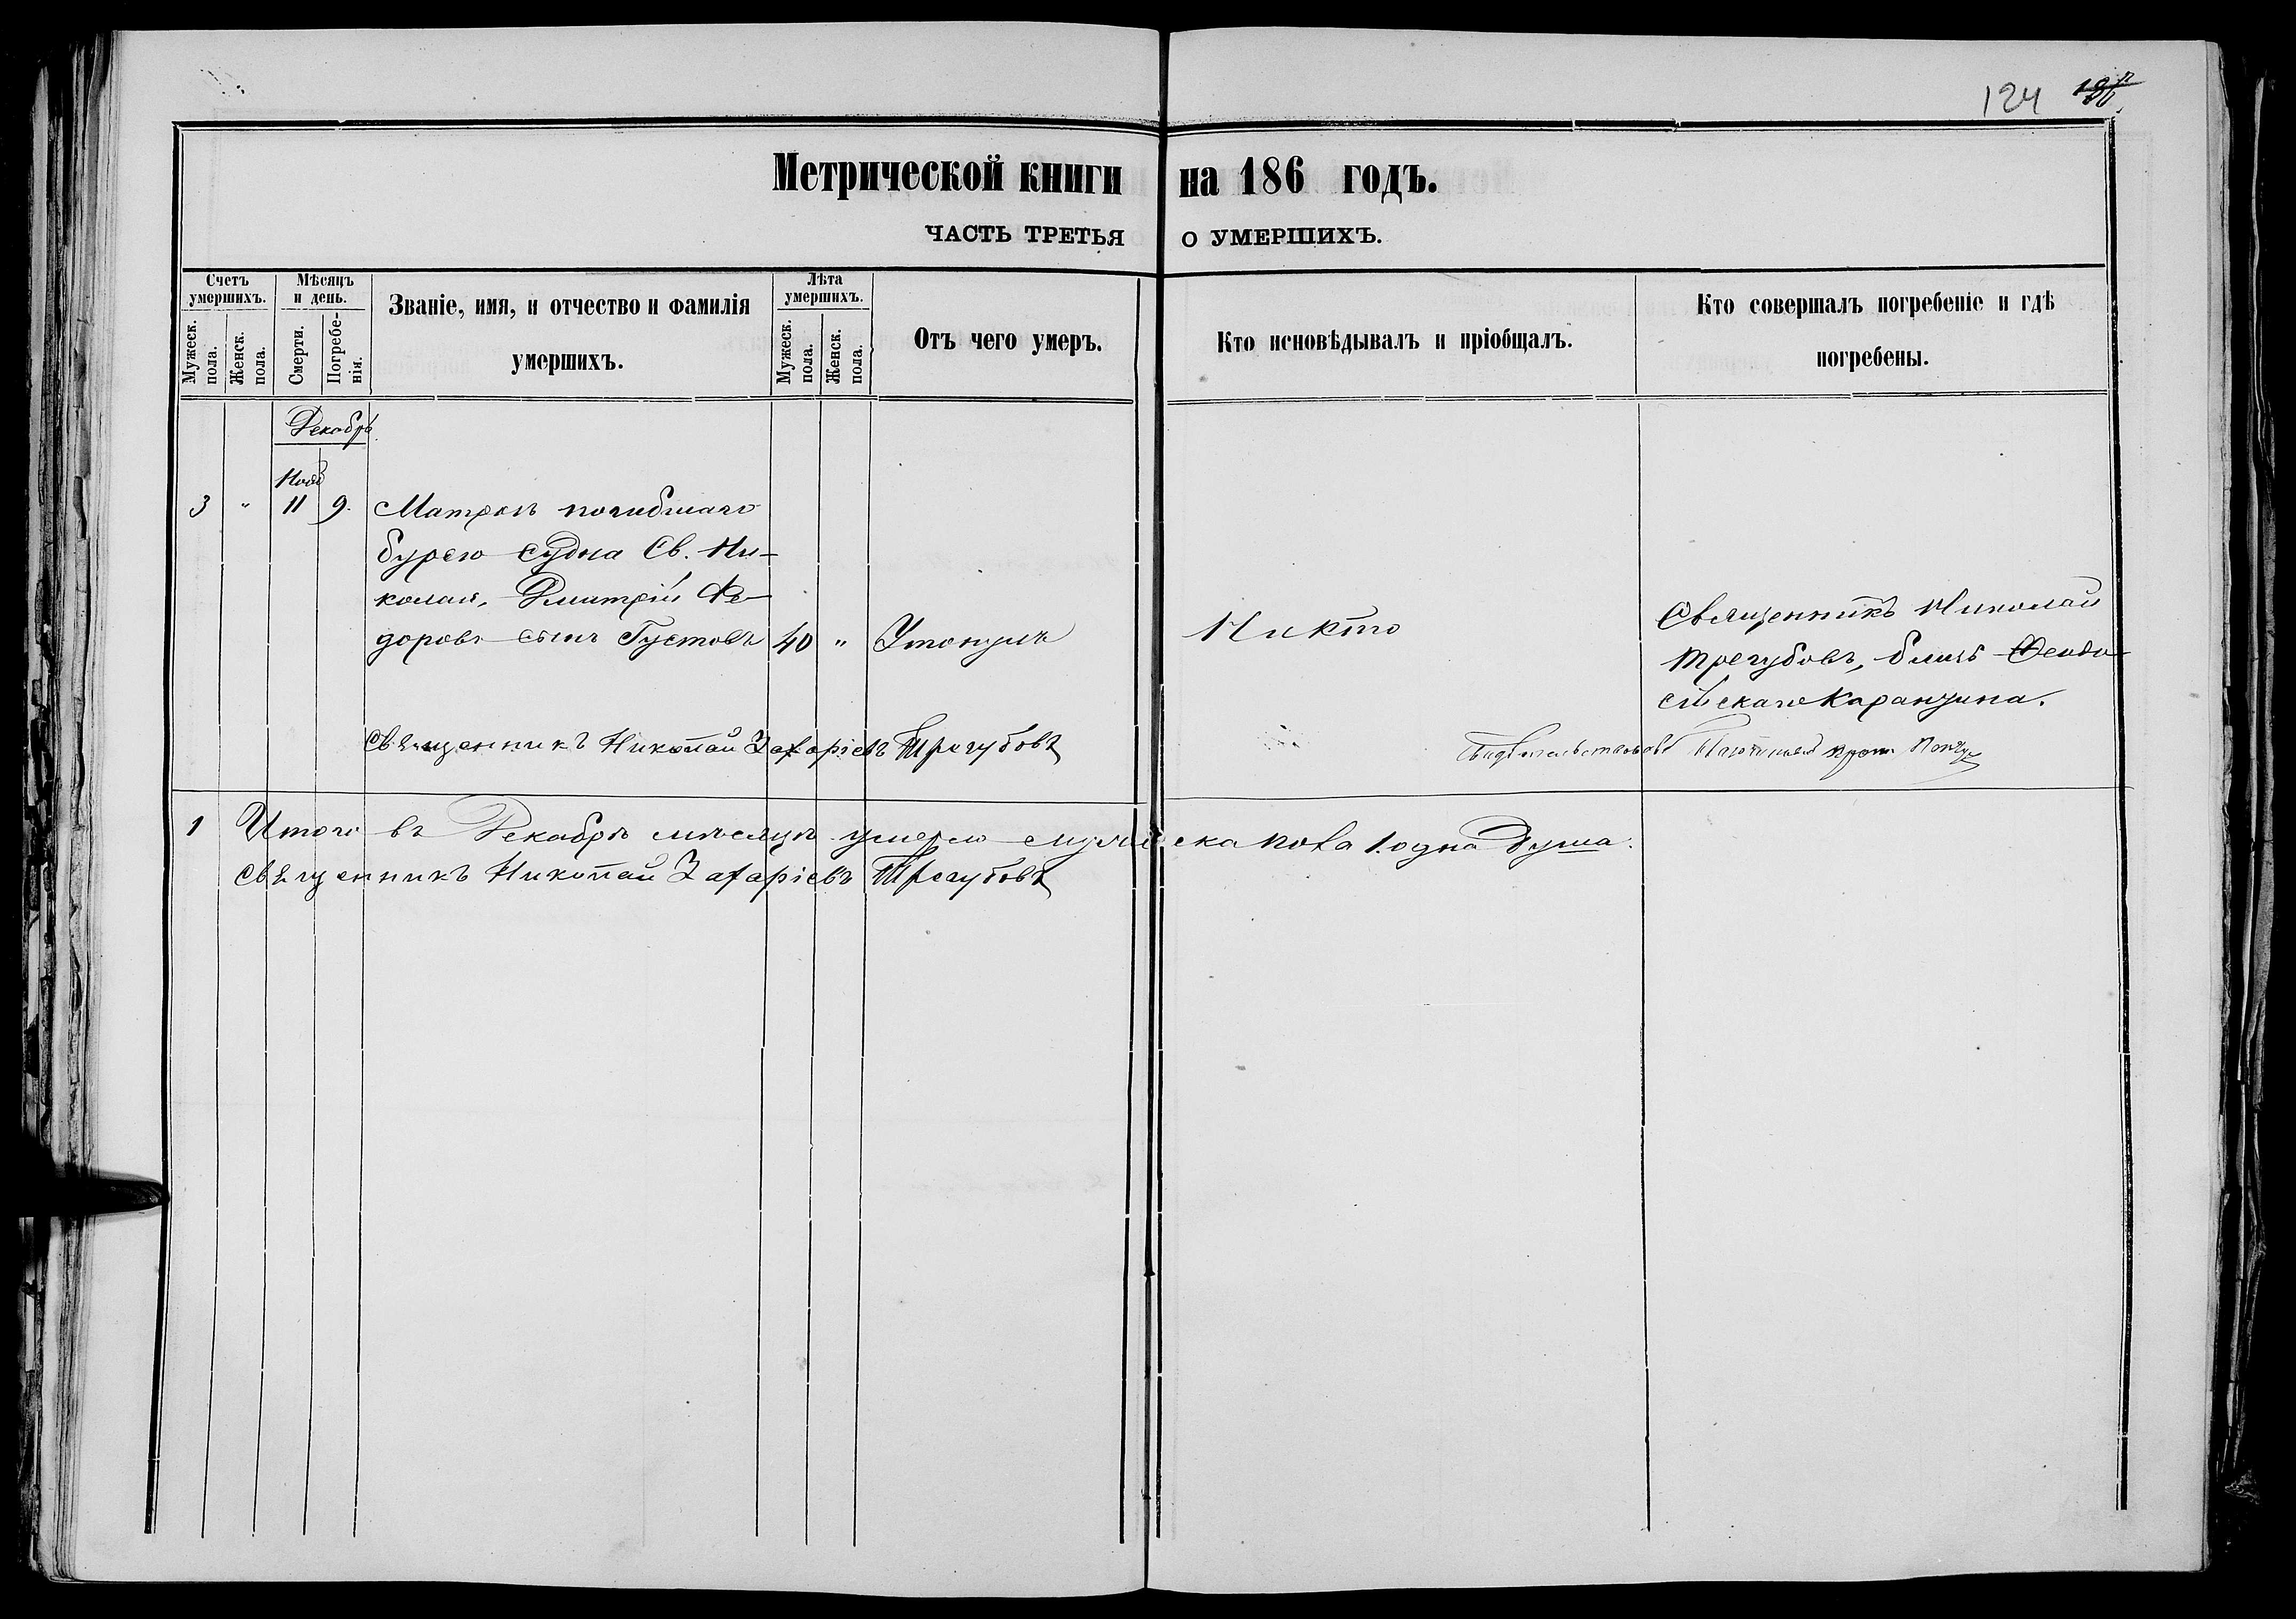 124
Метрической книги на 186 годъ.
ЧАСТЬ ТРЕТЬЯ О УМЕРШИХЪ.
Счетъ умершихъ.
Мужеск. пола.
Женск. пола.
Мѣсяцъ и день.
Смерти.
Погребе-нія.
Званіе, имя, и отчество и фамилія
умершихъ.
Лѣта умершихъ.
Мужеск. пола.
Женск. пола.
Отъ чего умеръ.
Кто исповѣдывалъ и пріобщалъ.
Кто совершалъ погребеніе и гдѣ
погребены.
Декабрь
Нояб
3 " 11 9. Матросъ погибшаго
бурею судна Св. Ни-
колая, Дмитрій Ѳе-
доровъ сынъ Густовъ 40 " Утонулъ Никто
Священникъ Николай
Трегубовъ, близъ Ѳеодо-
сійскаго Карантина.
Священникъ Николай Захаріевъ Трегубовъ
Свидѣтельствовалъ
1 Итого въ Декабрѣ мѣсяцѣ умерло мужеска пола 1. одна душа.
Священникъ Николай Захаріевъ Трегубовъ